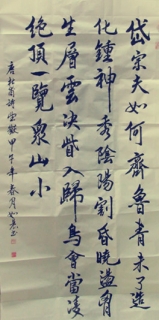 岱宗夫如何齊魯青未了造
化鍾神秀陰陽割昏曉盪胷
生層雲決眥入歸鳥會當凌
絕頂一覽衆山小
唐杜甫詩望嶽甲午年春月